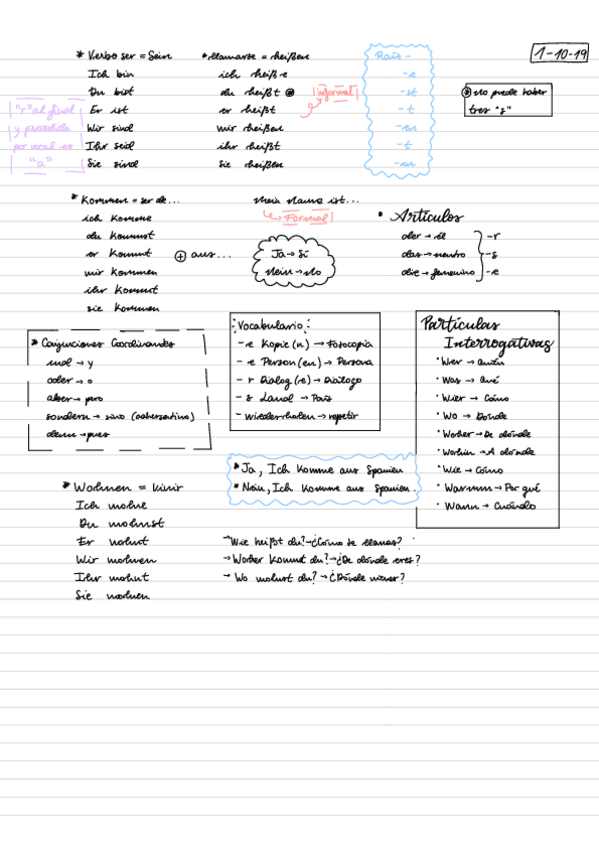 1-10-19
* Verbo ser = Sein
Ich bin
Du bist
Er ist
Wir sind
Ihr seid
Sie sind
"r" al final
y precedida
por vocal es
"a"
* llamarse = heißen
ich heiß-e
du heißt
er heißt
wir heißen
ihr heißt
sie heißen
informal
Raíz -
-e
-st
-t
-en
-t
-en
no puede haber
tres "s"
* Kommen = ser de...
ich komme
du kommst
er kommt
wir kommen
ihr kommt
sie kommen
+ aus...
Mein Name ist...
Formal
Ja → Sí
Nein → No
• Artículos
der → él
das → neutro
die → femenino
-r
-s
-e
* Conjunciones Coordinantes
und → y
oder → o
aber → pero
sondern → sino (adversativo)
denn → pues
Vocabulario:
-e Kopie(n) → Fotocopia
-e Person(en) → Persona
-r Dialog(e) → Diálogo
-s Land → País
-wiederholen → repetir
Partículas
Interrogativas
• Wer → Quién
• Was → Qué
• Wier → Cómo
• Wo → Dónde
• Woher → De dónde
• Wohin → A dónde
• Wie → Cómo
• Warum → Por qué
• Wann → Cuándo
* Ja, Ich komme aus Spanien
* Nein, Ich komme aus Spanien.
* Wohnen = vivir
Ich wohne
Du wohnst
Er wohnt
Wir wohnen
Ihr wohnt
Sie wohnen
→ Wie heißt du? → ¿Cómo te llamas?
→ Woher kommt du? → ¿De dónde eres?
→ Wo wohnst du? → ¿Dónde vives?